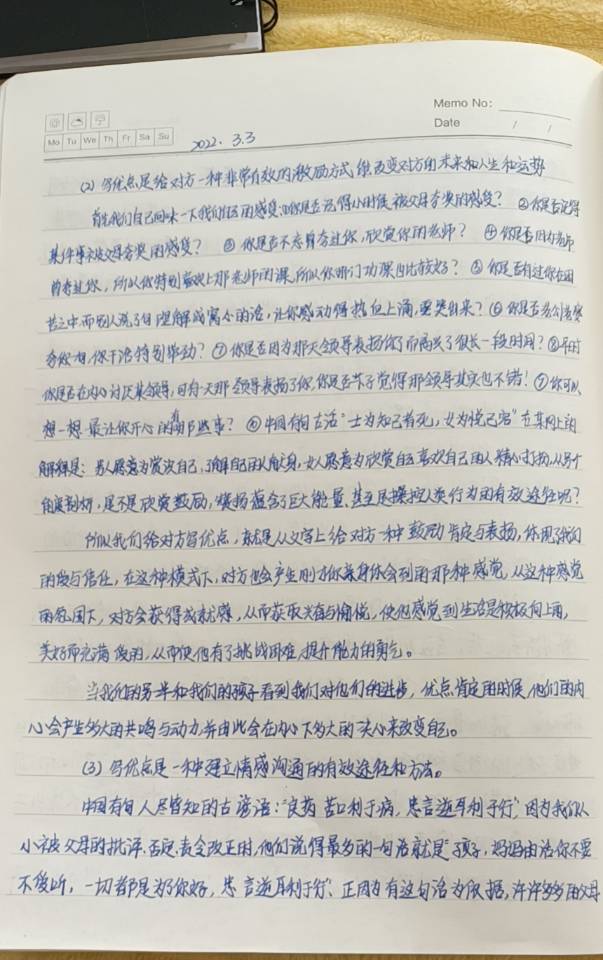 Memo No:
Mo Tu We Th Fr Sa Su
Date / /
2022. 3.3
(2) 写优点是给对方一种非常有效的激励方式,能改变对方的未来和人生和运势
首先我们自己回味一下我们的感受:①你是否记得小时候被父母夸奖的感受? ②你是否记得
某件事被父母夸奖的感受? ③ 你是否不忘曾夸过你,欣赏你的老师? ④ 你是否因为老师
曾夸过你,所以你特别喜欢上那老师的课,所以你那门功课也比较好? ⑤ 你是否有过你在困
苦之中,而别人说了句理解或窝心的话,让你感动得热血上涌,要哭出来?⑥ 你是否
你干活特别带劲? ⑦ 你是否因为那天领导表扬你了而高兴了很长一段时间?⑧平时
你是否在内心讨厌某领导,可有一天那领导表扬了你,你是否一下子觉得那领导其实也不错! ⑨你可以
想一想最让你开心的有那些事? ⑩ 中国有句古话"士为知己者死,女为悦己容"在某网上的
解释是:男人愿意为赏识自己,了解自己的人献身,女人愿意为欣赏自己喜欢自己的人精心打扮,从另个
角度剖析,是不是欣赏鼓励,赞扬蕴含了巨大能量,甚至是操控人类行为的有效途径呢?
所以我们给对方写优点,就是从文字上给对方一种鼓励肯定与表扬,体现了我们
的爱与信任,在这种模式下,对方也会产生刚才你亲身体会到的那种感觉,从这种感觉
的氛围下,对方会获得成就感,从而获取兴奋与愉悦,使他感觉到生活是积极向上的,
美好而充满爱的,从而使他有了挑战困难,提升能力的勇气。
当我们的另一半和我们的孩子看到我们对他们的进步,优点肯定的时候,他们的内
心会产生多大的共鸣与动力,并由此会在内心下多大的决心来改变自己。
(3) 写优点是一种建立情感沟通的有效途径和方法。
中国有句人尽皆知的古谚语:"良药苦口利于病,忠言逆耳利于行",因为我们从
小被父母的批评,否定,责令改正时,他们说得最多的一句话就是"孩子,妈妈的话你不要
不爱听,一切都是为了你好,忠言逆耳利于行",正因为有这句话为依据,许许多多的父母